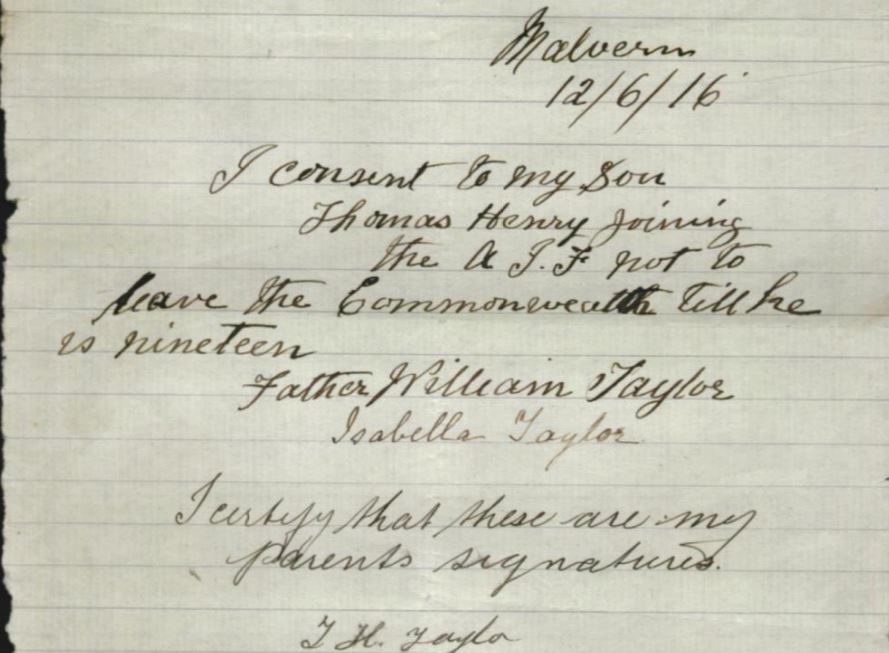 Malvern
12/6/16
I consent to my Son
Thomas Henry joining
the A I.F not to
leave the Commonwealth till he
is nineteen
Father William Taylor
Isabella Taylor
I certify that these are my
parents signatures.
T H. Taylor